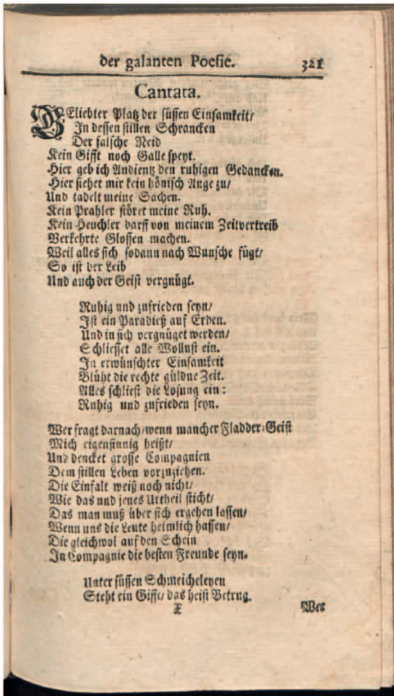 der galanten Poesie. 321
Cantata.
BEliebter Platz der süssen Einsamkeit/
In dessen stillen Schrancken
Der falsche Neid
Kein Gifft noch Galle speyt.
Hier geb ich Audientz den ruhigen Gedancken.
Hier siehet mir kein hönisch Auge zu/
Und tadelt meine Sachen.
Kein Prahler störet meine Ruh.
Kein Heuchler darff von meinem Zeitvertreib
Verkehrte Glossen machen.
Weil alles sich sodann nach Wunsche fügt/
So ist der Leib
Und auch der Geist vergnügt.
Ruhig und zufrieden seyn/
Ist ein Paradieß auf Erden.
Und in sich vergnüget werden/
Schliesset alle Wollust ein.
In erwünschter Einsamkeit
Blüht die rechte güldne Zeit.
Alles schliest die Losung ein:
Ruhig und zufrieden seyn.
Wer fragt darnach/wenn mancher Fladder-Geist
Mich eigensinnig heißt/
Und dencket grosse Compagnien
Dem stillen Leben vorzuziehen.
Die Einfalt weiß noch nicht/
Wie das und jenes Urtheil sticht/
Das man muß über sich ergehen lassen/
Wenn uns die Leute heimlich hassen/
Die gleichwol auf den Schein
In Compagnie die besten Freunde seyn.
Unter süssen Schmeicheleyen
Steht ein Gifft/ das heist Betrug.
X Wer